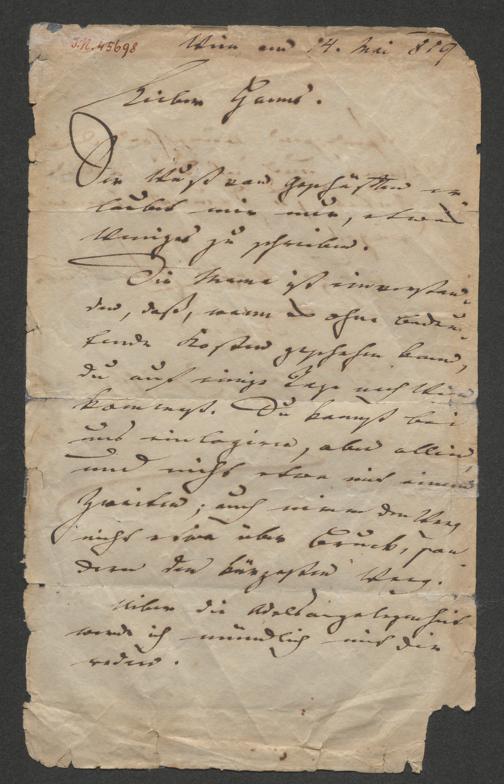 J.N. 45698
Wien am 14. Mai 819
Lieber Hanns.
Der Wust von Geschäften er-
laubet mir nur, etwas
Weniges zu schreiben.
Die Mama ist einverstan-
den, daß, wenn es ohne bedeu-
tende Kosten geschehen kann,
du auf einige Tage nach Wien
kommest. Du kannst bei
uns einlogiren, aber allein,
und nicht etwa mit einem
Zweiten; auch nimm den Weg
nicht etwa über Bruck, son-
dern den kürzesten Weg.
Uiber die Adelsangelegenheit
werde ich mündlich mit dir
reden.